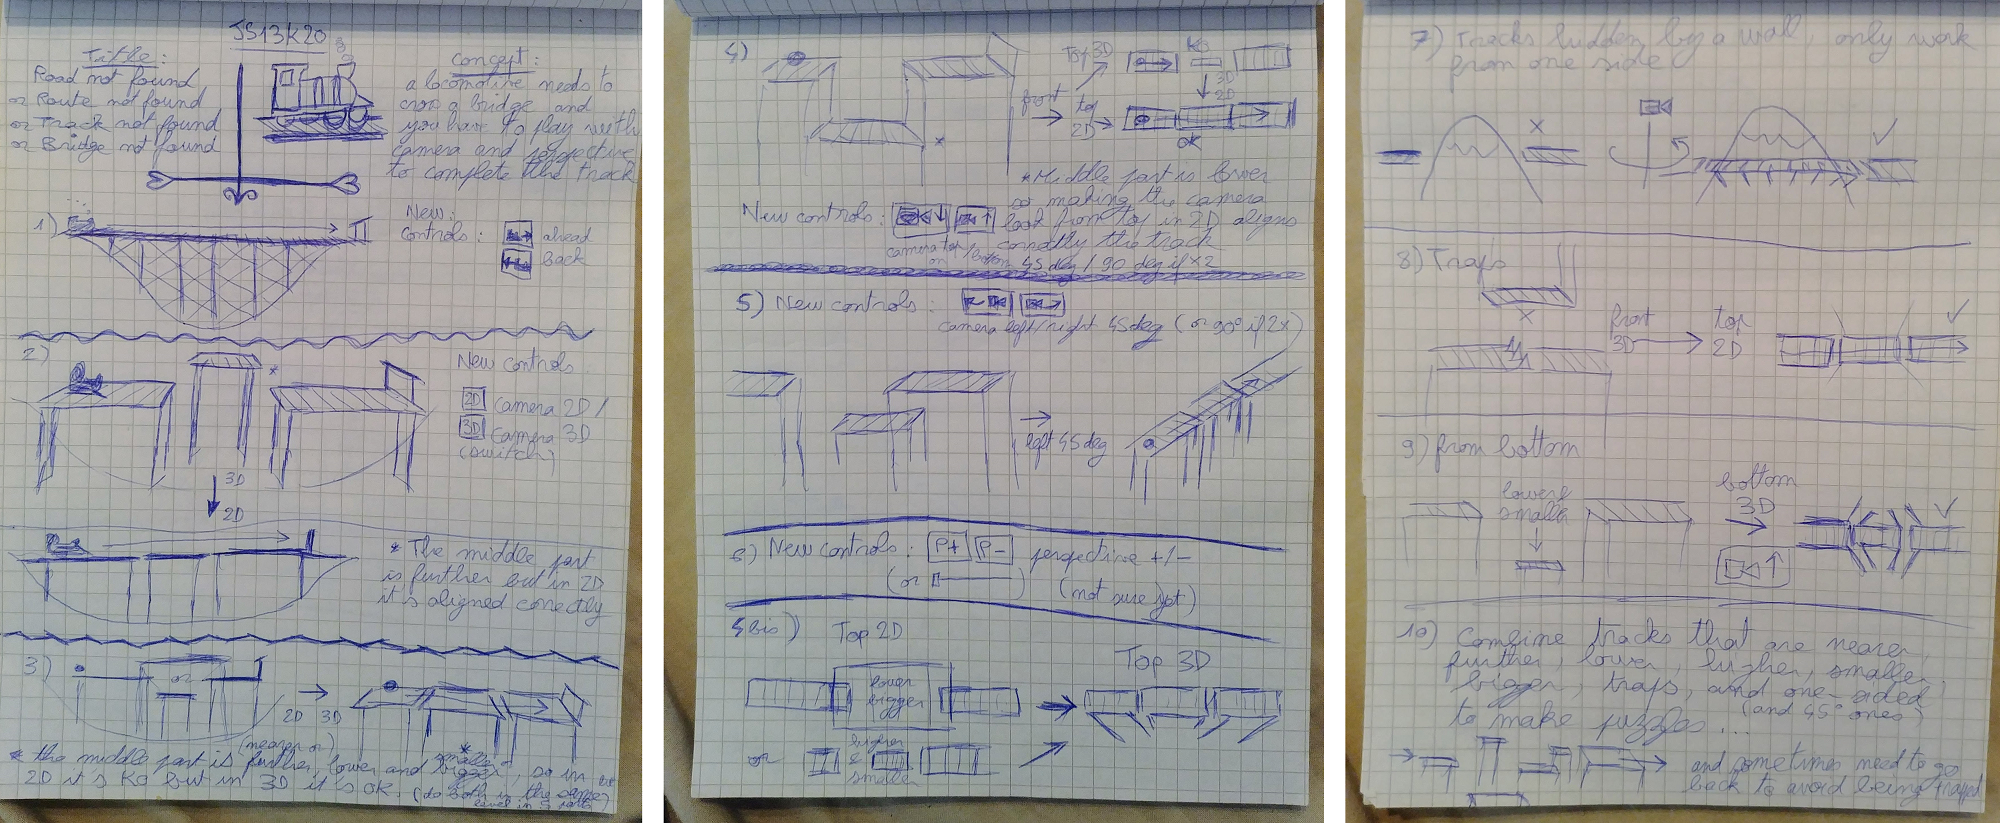 JS13K20
Title:
Road not found
or Route not found
or Track not found
or Bridge not found
concept:
a locomotive needs to
cross a bridge and
you have to play with
camera and perspective
to complete the track
1)
New
controls:
ahead
back
2)
New controls:
2D camera 2D /
3D camera 3D
(switch)
3D
2D
* The middle part
is further but in 2D
it's aligned correctly
3)
or
2D
3D
(nearer or)
* the middle part is further, lower and bigger, so in
2D it's KO but in 3D it's ok. (do both in the same
level in 2 parts)
4)
Top 3D
KO
3D
2D
front
top
2D
OK
*
* Middle part is lower
so making the camera
look from top in 2D aligns
correctly the track
New controls:
camera top / bottom 45 deg / 90 deg if x2
5) New controls:
camera left/right 45deg (or 90° if 2x)
left 45 deg
6) New controls: P+ P- perspective +/-
(or ) (not sure yet)
4bis) Top 2D
Top 3D
lower
bigger
or
higher
&
smaller
7) Tracks hidden by a wall, only work
from one side
X
✓
8) Traps
X
front
3D
top
2D
✓
9) from bottom
lower &
smaller
bottom
3D
✓
10) Combine tracks that are nearer,
further, lower, higher, smaller,
bigger, traps, and one-sided
(and 45° ones)
to make puzzles ...
and sometimes need to go
back to avoid being trapped